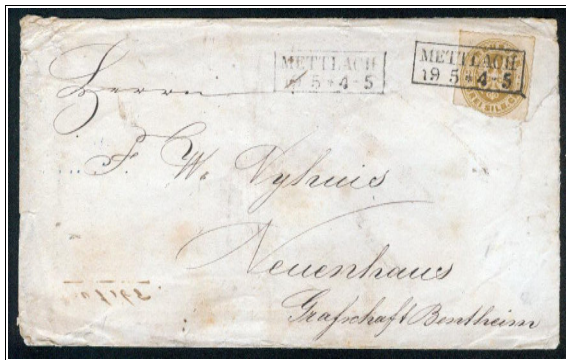 METTLACH
19 5 * 4-5
METTLACH
19 5 * 4-5
DREI SILB. GR.
Herrn
F. W. Nyhuis
Neuenhaus
Grafschaft Bentheim